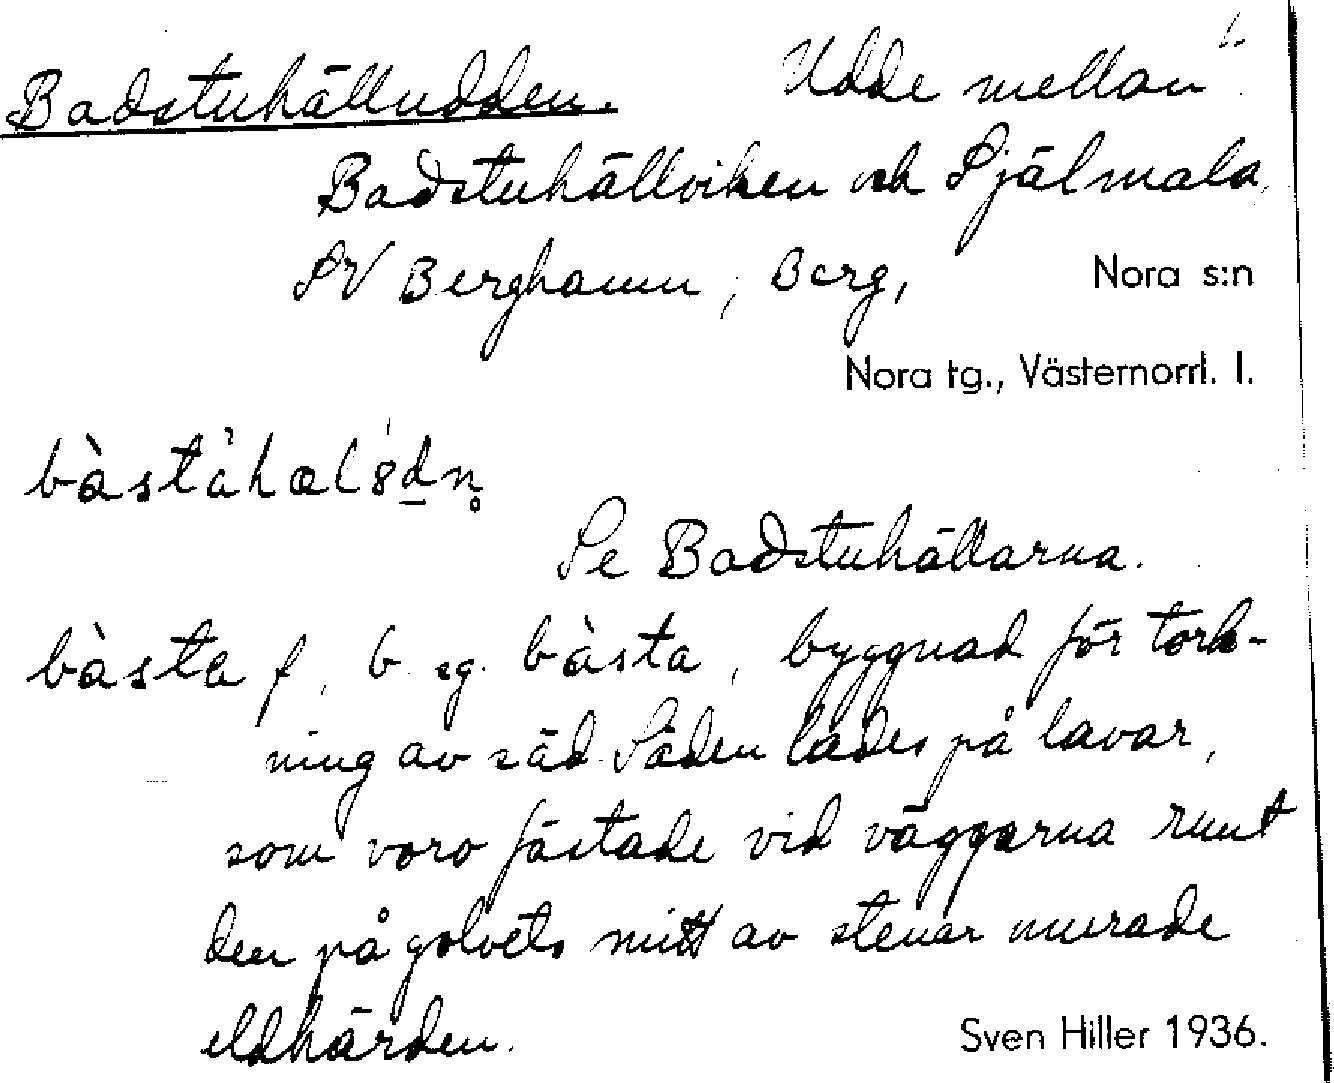 Badstuhälludden. Udde mellan
Badstuhällviken och Själmala,
SV Berghamn, Berg, Nora s:n
Nora tg., Västernorrl. l.
Se Badstuhällarna.
bàsta f, b. sg. bàsta, byggnad för tork-
ning av säd. Säden lades på lavar,
som voro fästade vid väggarna runt
den på golvets mitt av stenar murade
eldhärden. Sven Hiller 1936.